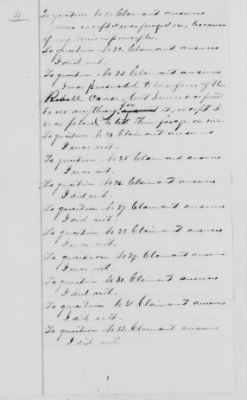 To question No 21 Claimant answers
was except I was forced on, because
of my union principles.
To question No 22 Claimant answers
I did not.
To question No 23 Claimant answers
I was to the
Rebell Cause,
to do any thing for it, except I
was forced to let them forage on me
To question No 24 Claimant answers
I was not.
To question No 25 Claimant answers
I was not.
To question No 26 Claimant answers
I did not.
To question No 27 Claimant answers
I did not.
To question No 28 Claimant answers
I was not.
To question No 29 Claimant answers
I was not.
To question No 30 Claimant answers
I did not.
To question No 31 Claimant answers
I did not.
To question No 32 Claimant answers
I did not.